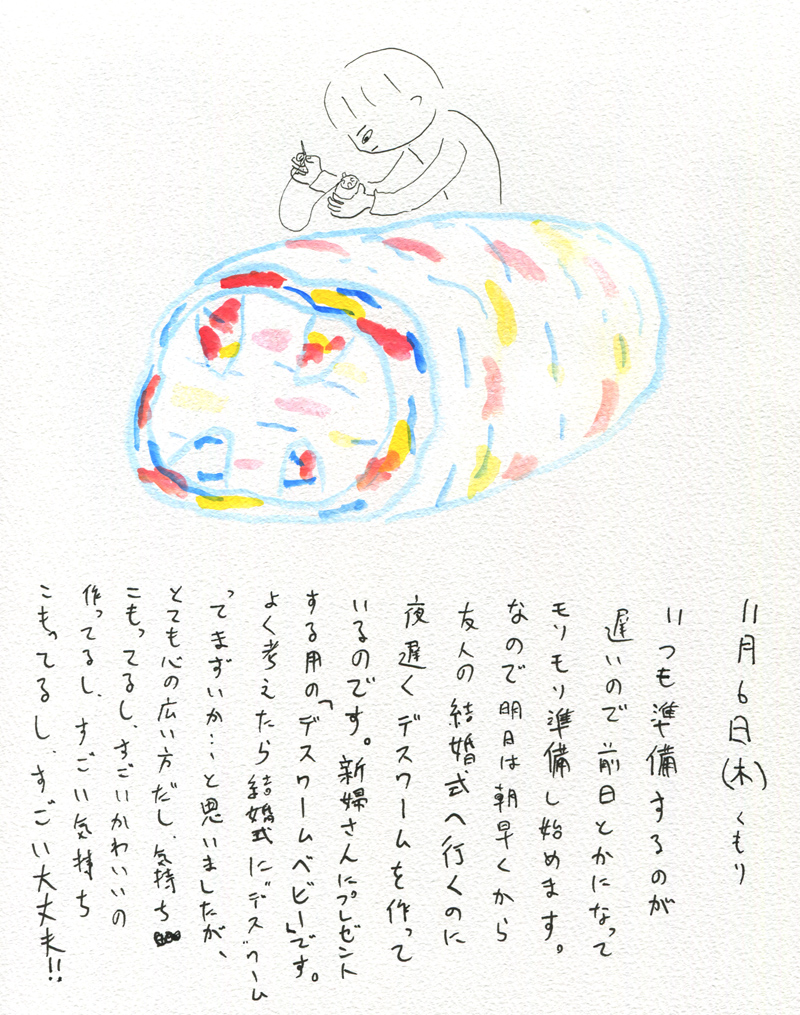 11月6日(木)くもり
いつも準備するのが
遅いので前日とかになって
モソモソ準備し始めます。
なので明日は朝早くから
友人の結婚式へ行くのに
夜遅くデスワームを作って
いるのです。新婦さんにプレゼント
する用の「デスワームベビー」です。
よく考えたら結婚式にデスワーム
ってまずいか…と思いましたが、
とても心の広い方だし、気持ち
こもってるし、すごいかわいいの
作ってるし、すごい気持ち
こもってるし、すごい大丈夫!!